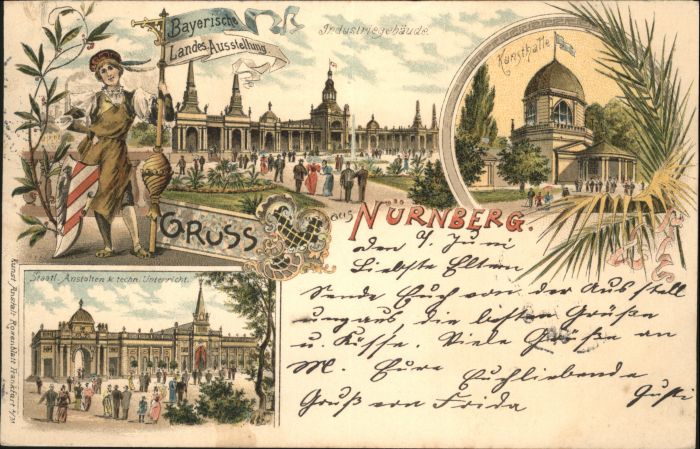 Bayerische
Landes Ausstellung
Industriegebäude.
Kunsthalle
GRUSS aus NÜRNBERG.
Staatl. Anstalten & techn. Unterricht.
Kunst-Anstalt Rosenblatt Frankfurt a/M
den 9/ Juni
Liebste Eltern
Sende Euch von der Ausstell
ung aus die besten Grüße
u. Küsse. Viele Grüße an
M. Eure Euchliebende
Gusti
Gruß von Frida